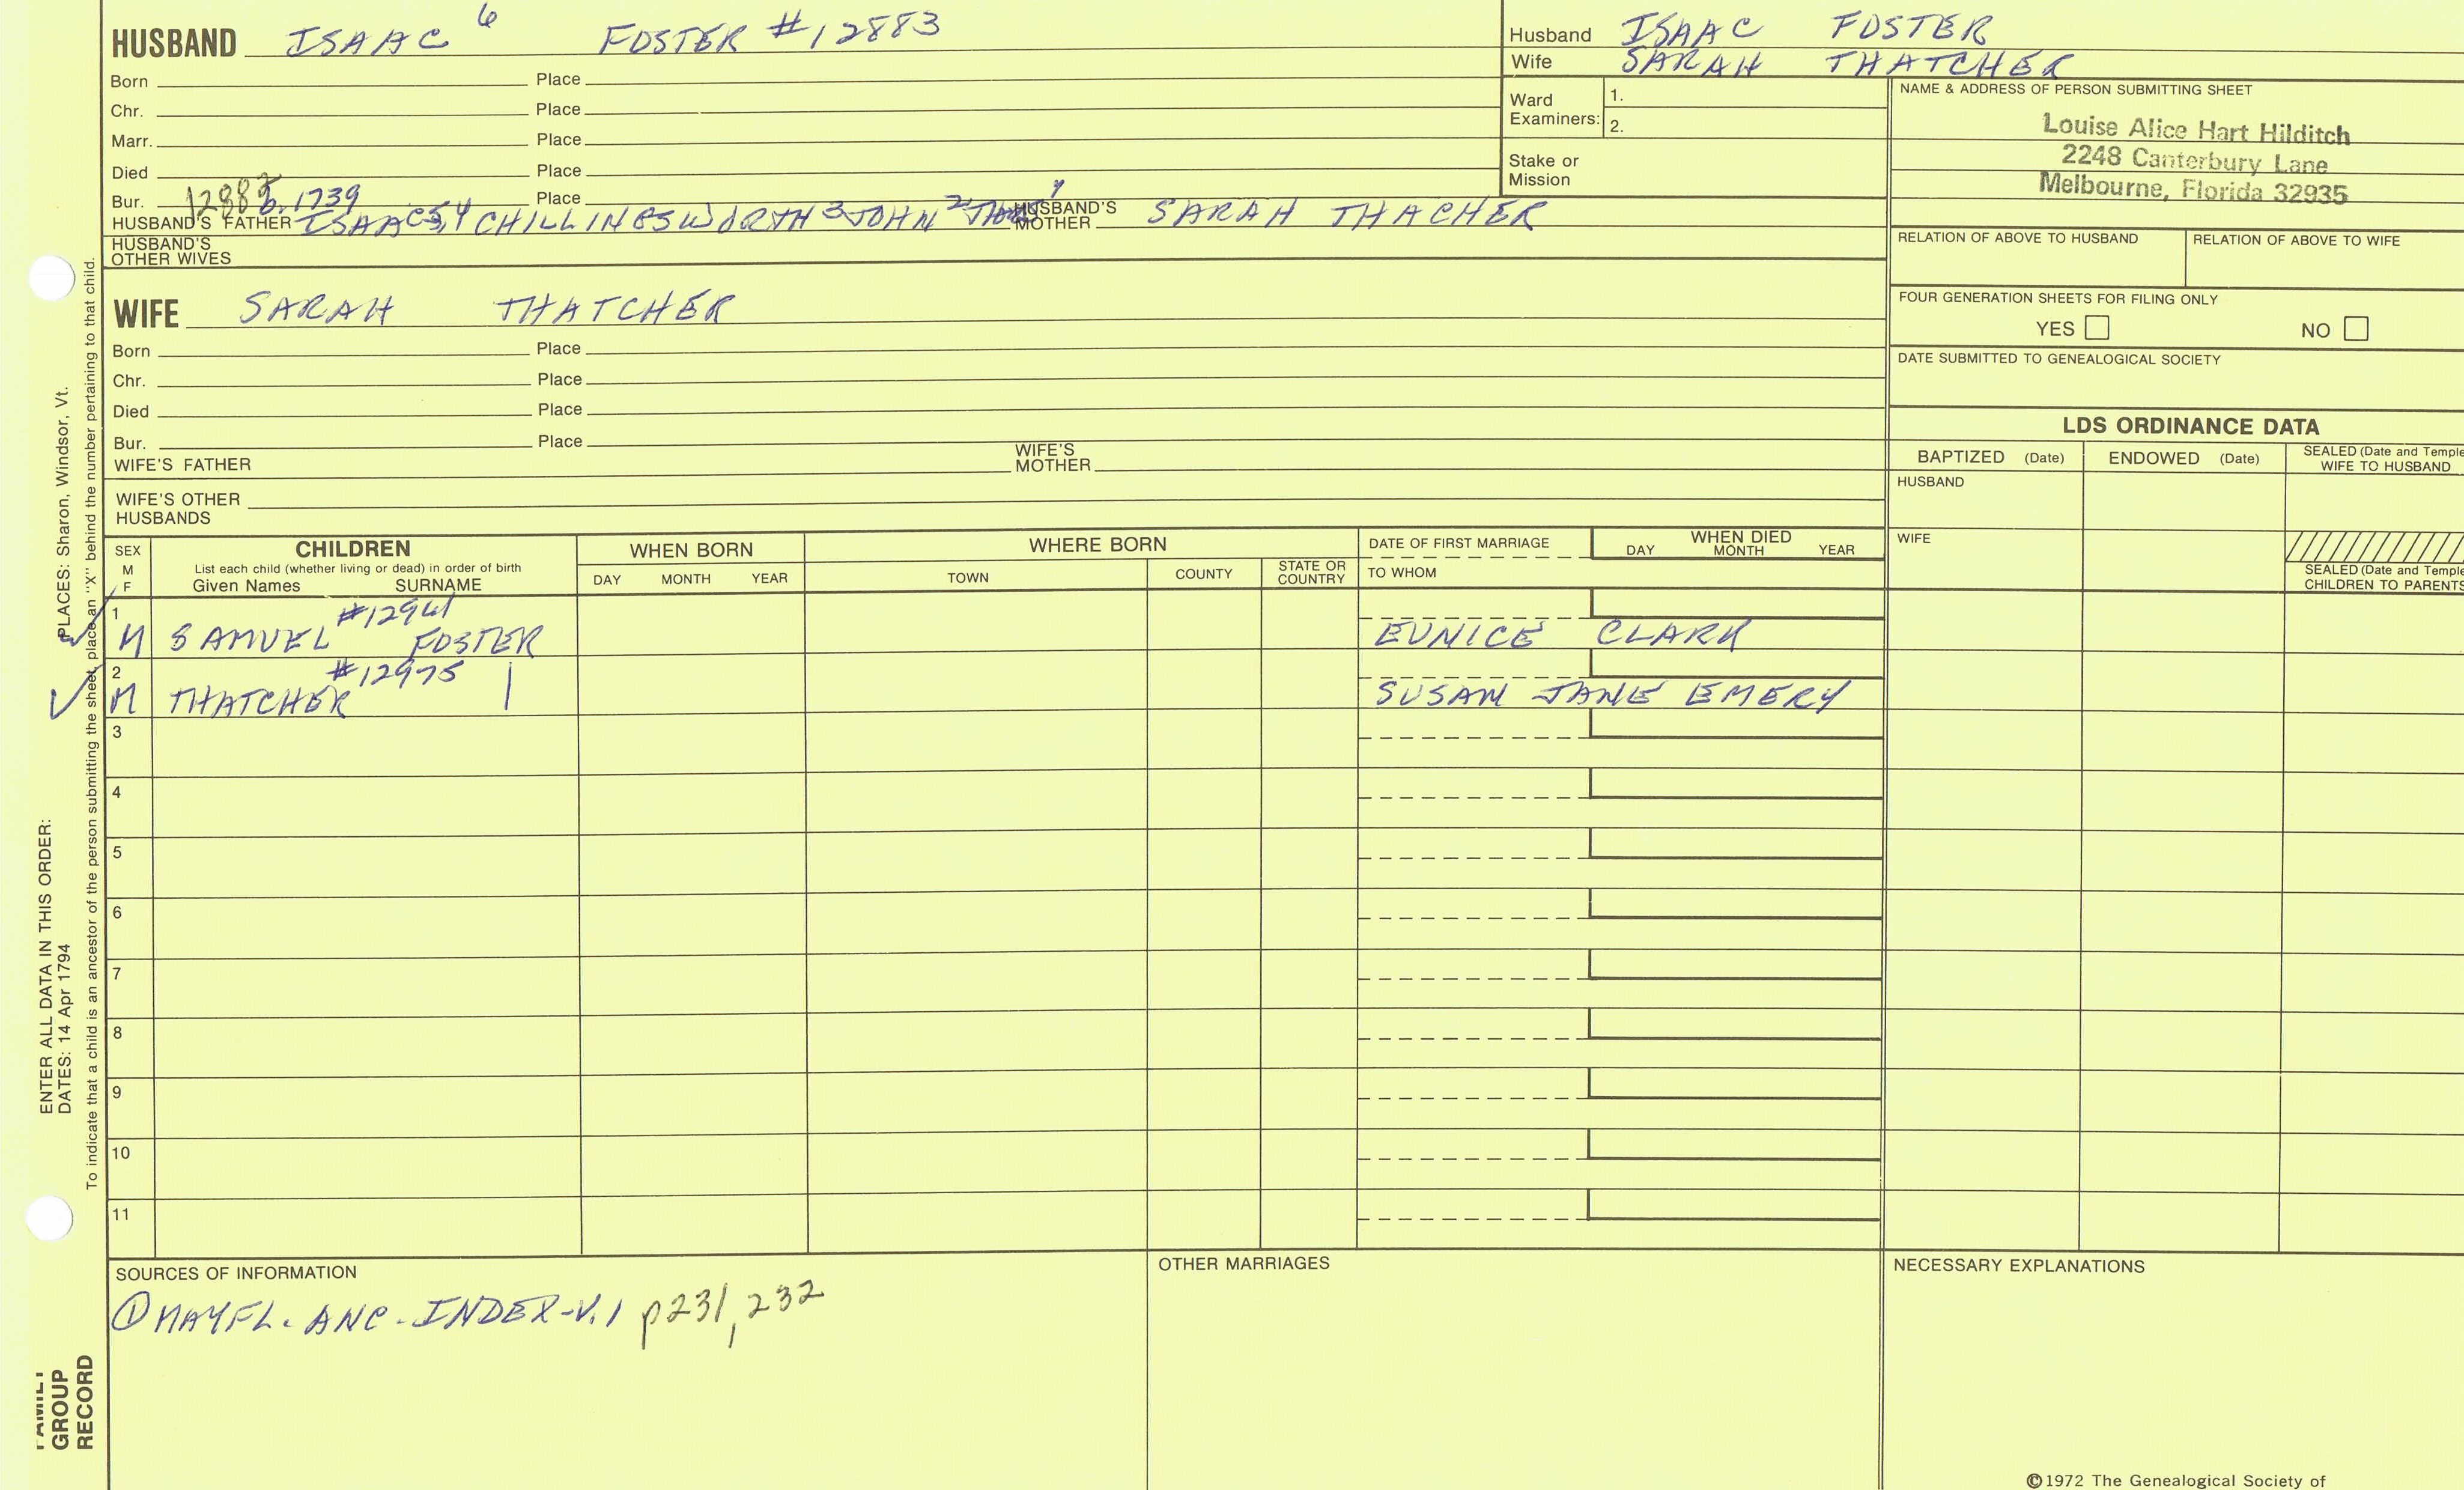 HUSBAND ISAAC 6 FOSTER #12883
Born Place
Chr. Place
Marr. Place
Died Place
Bur. b. 1739 Place
HUSBAND'S FATHER ISAAC 5,4 CHILLINGSWORTH 3 JOHN 2 HUSBAND'S MOTHER SARAH THACHER
HUSBAND'S OTHER WIVES
Husband ISAAC FOSTER
Wife SARAH THATCHER
Ward Examiners: 1.
2.
Stake or Mission
NAME & ADDRESS OF PERSON SUBMITTING SHEET
Louise Alice Hart Hilditch
2248 Canterbury Lane
Melbourne, Florida 32935
RELATION OF ABOVE TO HUSBAND RELATION OF ABOVE TO WIFE
FOUR GENERATION SHEETS FOR FILING ONLY
YES NO
DATE SUBMITTED TO GENEALOGICAL SOCIETY
WIFE SARAH THATCHER
Born Place
Chr. Place
Died Place
Bur. Place
WIFE'S FATHER WIFE'S MOTHER
WIFE'S OTHER HUSBANDS
LDS ORDINANCE DATA
BAPTIZED (Date) ENDOWED (Date) SEALED (Date and Temple
WIFE TO HUSBAND
HUSBAND
WIFE
SEALED (Date and Temple
CHILDREN TO PARENTS
SEX M F CHILDREN WHEN BORN WHERE BORN DATE OF FIRST MARRIAGE WHEN DIED
List each child (whether living or dead) in order of birth
Given Names SURNAME DAY MONTH YEAR TOWN COUNTY STATE OR COUNTRY TO WHOM DAY MONTH YEAR
1 #12941
M SAMUEL FOSTER EUNICE CLARK
2 #12975
M THATCHER | SUSAN JANE EMERY
3
4
5
6
7
8
9
10
11
SOURCES OF INFORMATION
① MAYFL. ANC. INDEX-V.1 p231, 232
OTHER MARRIAGES
NECESSARY EXPLANATIONS
©1972 The Genealogical Society of
ENTER ALL DATA IN THIS ORDER:
DATES: 14 Apr 1794
PLACES: Sharon, Windsor, Vt.
To indicate that a child is an ancestor of the person submitting the sheet, place an "X" behind the number pertaining to that child.
GROUP
RECORD